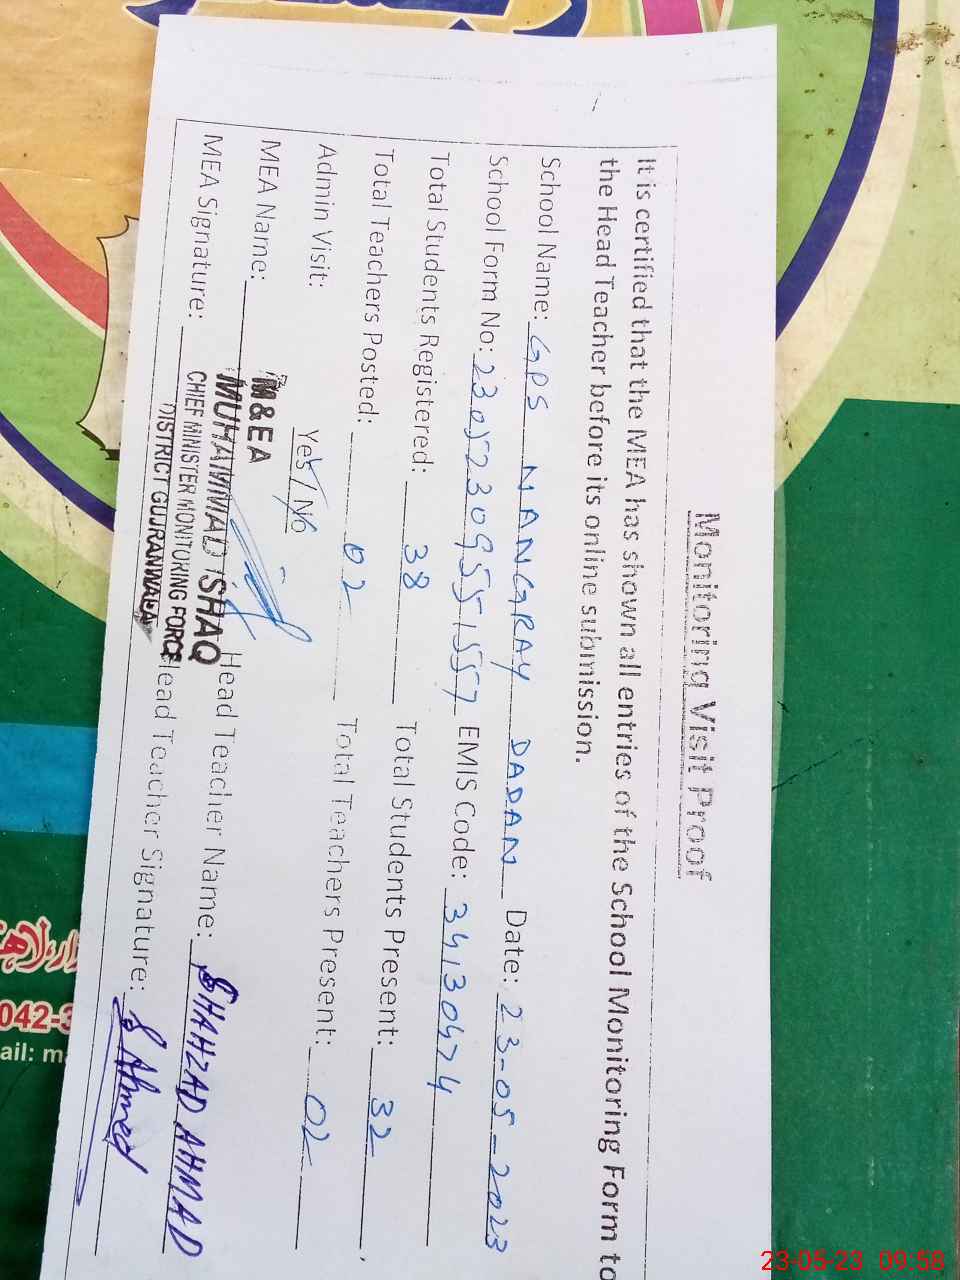 Monitoring Visit Proof
It is certified that the MEA has shown all entries of the School Monitoring Form to
the Head Teacher before its online submission.
School Name: GPS NANGRAY DADAN Date: 23-05-2023
School Form No: EMIS Code: 34130474
Total Students Registered: 38 Total Students Present: 32
Total Teachers Posted: 02 Total Teachers Present: 02
Admin Visit: Yes / No
MEA Name: Head Teacher Name: SHAHZAD AHMAD
MEA Signature: Head Teacher Signature: S Ahmed
M&EA
MUHAMMAD ISHAQ
CHIEF MINISTER MONITORING FORCE
DISTRICT GUJRANWALA
042-3
ail: m
23-05-23 09:58